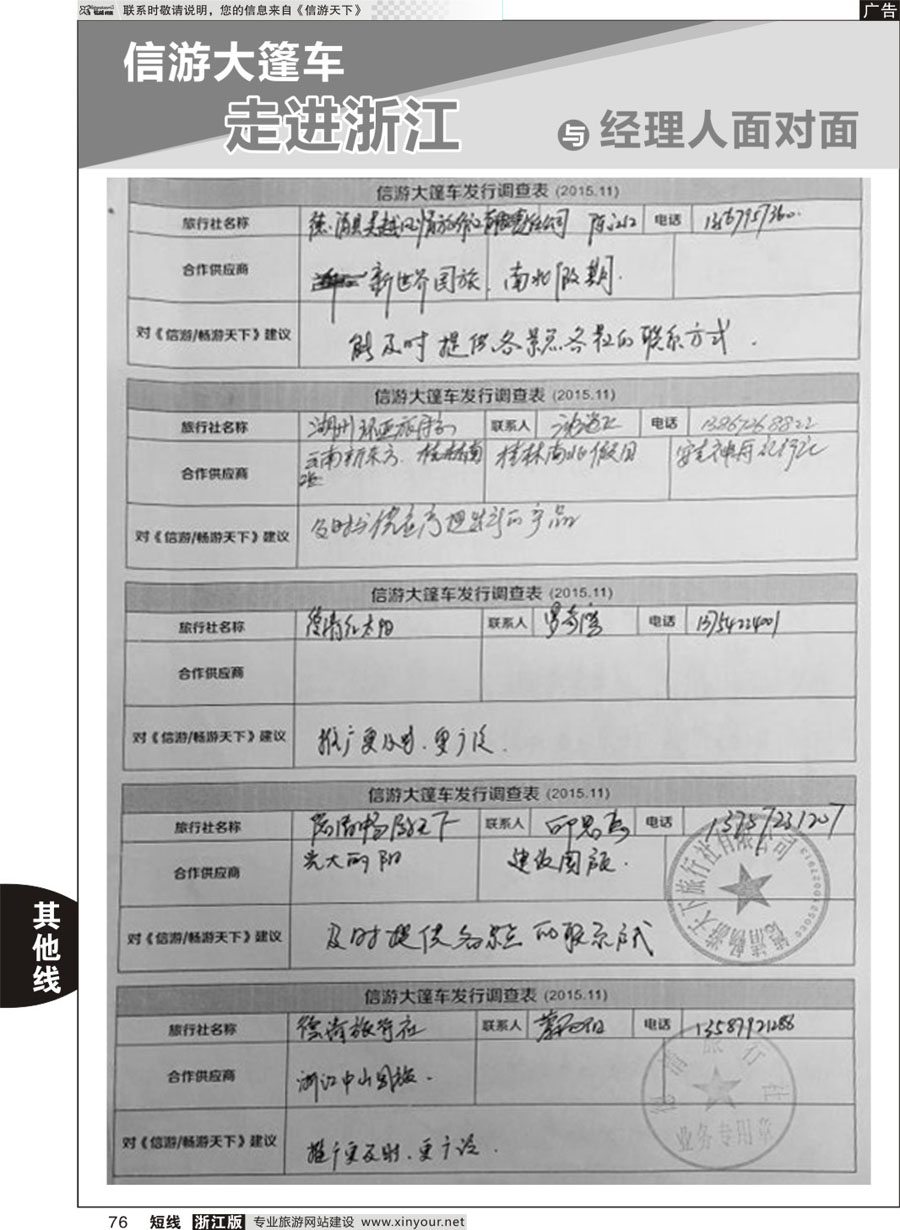 联系时敬请说明，您的信息来自《信游天下》
广告
信游大篷车
走进浙江
与 经理人面对面
信游大篷车发行调查表 (2015.11)
旅行社名称 电话
合作供应商 新世界国旅. 南北假期.
对《信游/畅游天下》建议 能及时提供各景点各社的联系方式.
信游大篷车发行调查表 (2015.11)
旅行社名称 湖州环亚旅行社 联系人 电话 13867268822
合作供应商 云南新东方. 桂林南北假日
对《信游/畅游天下》建议 及时
信游大篷车发行调查表 (2015.11)
旅行社名称 德清红太阳 联系人 电话 13754224001
合作供应商
对《信游/畅游天下》建议 推广更及时、更广泛.
信游大篷车发行调查表 (2015.11)
旅行社名称 德清畅游天下 联系人 电话 13757231207
合作供应商 光大 建设国旅.
对《信游/畅游天下》建议 及时提供各景点的联系方式
德清畅游天下旅行社有限公司
信游大篷车发行调查表 (2015.11)
旅行社名称 德清旅行社 联系人 电话 13587921288
合作供应商 浙江中山国旅.
对《信游/畅游天下》建议 推广更及时、更广泛.
德清旅行社
业务专用章
其他线
76 短线 浙江版 专业旅游网站建设 www.xinyour.net